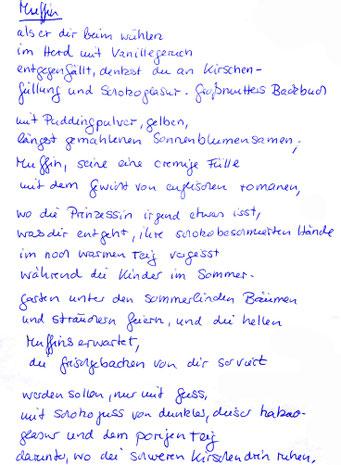 Muffin
als er dir beim wühlen
im Herd mit Vanillegeruch
entgegenfällt, denkst du an Kirschen-
füllung und Schokoglasur. Großmutters Backbuch
mit Puddingpulver, gelben,
längst gemahlenen Sonnenblumensamen,
Muffin, seine eine cremige Fülle
mit dem Gewürz von englischen romanen,
wo die Prinzessin irgend etwas isst,
was dir entgeht, ihre schokobeschmierten Hände
im noch warmen Teig vergisst
während die Kinder im Sommer-
garten unter den sommerlinden Bäumen
und sträuchern feiern, und die hellen
Muffins erwartet,
die frischgebachen von dir serviert
werden sollen, nur mit Guss,
mit schokoguss von dunkler, dieser kakao-
glasur und dem porigen Teig
darunter, wo die schweren Kirschen drin ruhen.